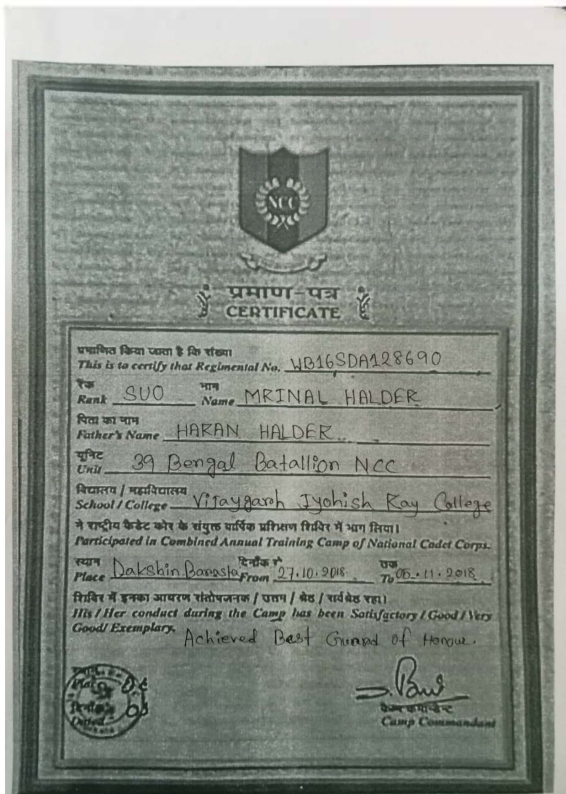 NCC
प्रमाण-पत्र
CERTIFICATE
प्रमाणित किया जाता है कि संख्या
This is to certify that Regimental No. WB16SDA128690
रैंक नाम
Rank SUO Name MRINAL HALDER
पिता का नाम
Father's Name HARAN HALDER
यूनिट
Unit 39 Bengal Batallion NCC
विद्यालय / महाविद्यालय
School / College Vijaygarh Jyohish Ray College
ने राष्ट्रीय कैडेट कोर के संयुक्त वार्षिक प्रशिक्षण शिविर में भाग लिया।
Participated in Combined Annual Training Camp of National Cadet Corps.
स्थान दिनाँक से तक
Place Dakshin Barasta From 27.10.2018 To 05.11.2018
शिविर में इनका आचरण संतोषजनक / उत्तम / श्रेष्ठ / सर्वश्रेष्ठ रहा।
His / Her conduct during the Camp has been Satisfactory / Good / Very
Good / Exemplary.
Achieved Best Guard of Honour.
कैम्प कमान्डेन्ट
Dated
Camp Commandant